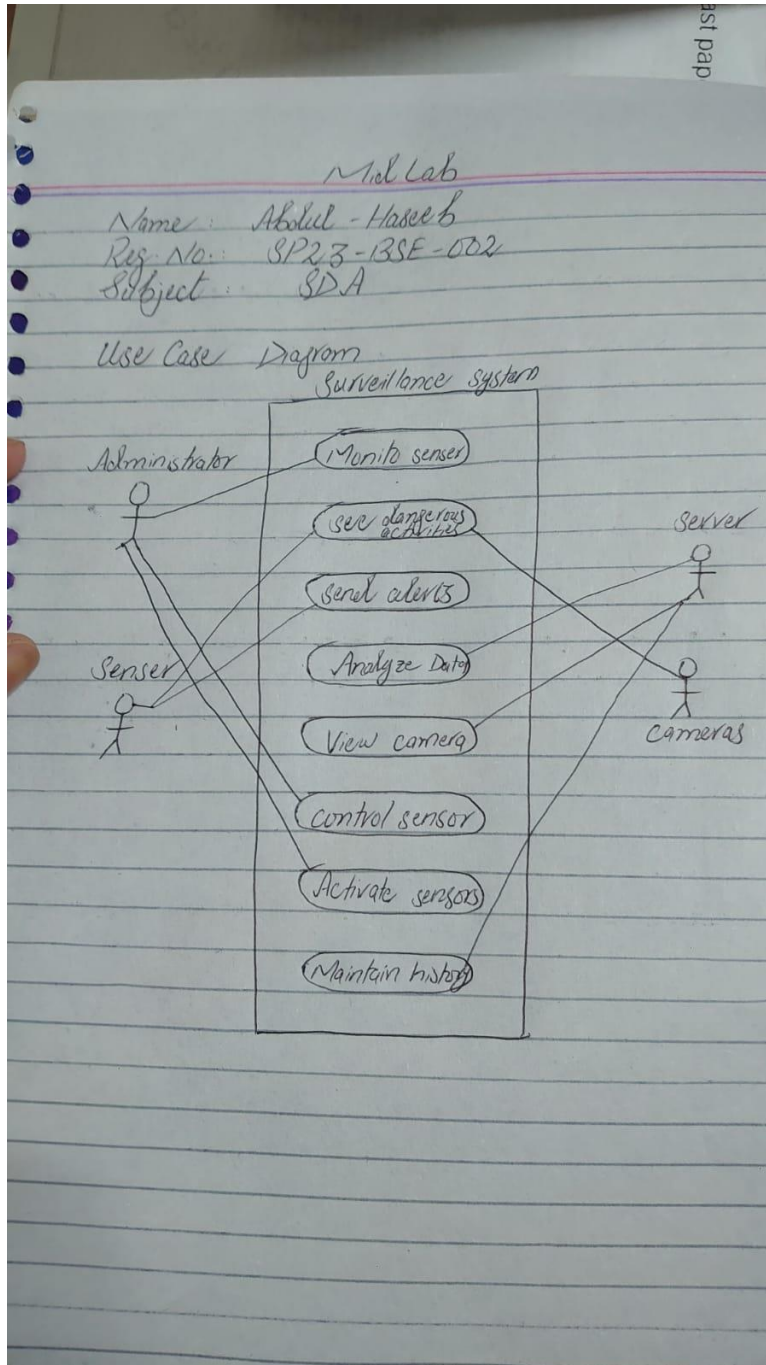 ast pap
Mid Lab
Name : Abdul - Haseeb
Reg. No. : SP23-BSE-002
Subject : SDA
Use Case Diagram
Surveillance system
Administrator
Monito senser
see dangerous
activities
server
send alerts
Senser
Analyze Data
cameras
View camera
control sensor
Activate sensors
Maintain history